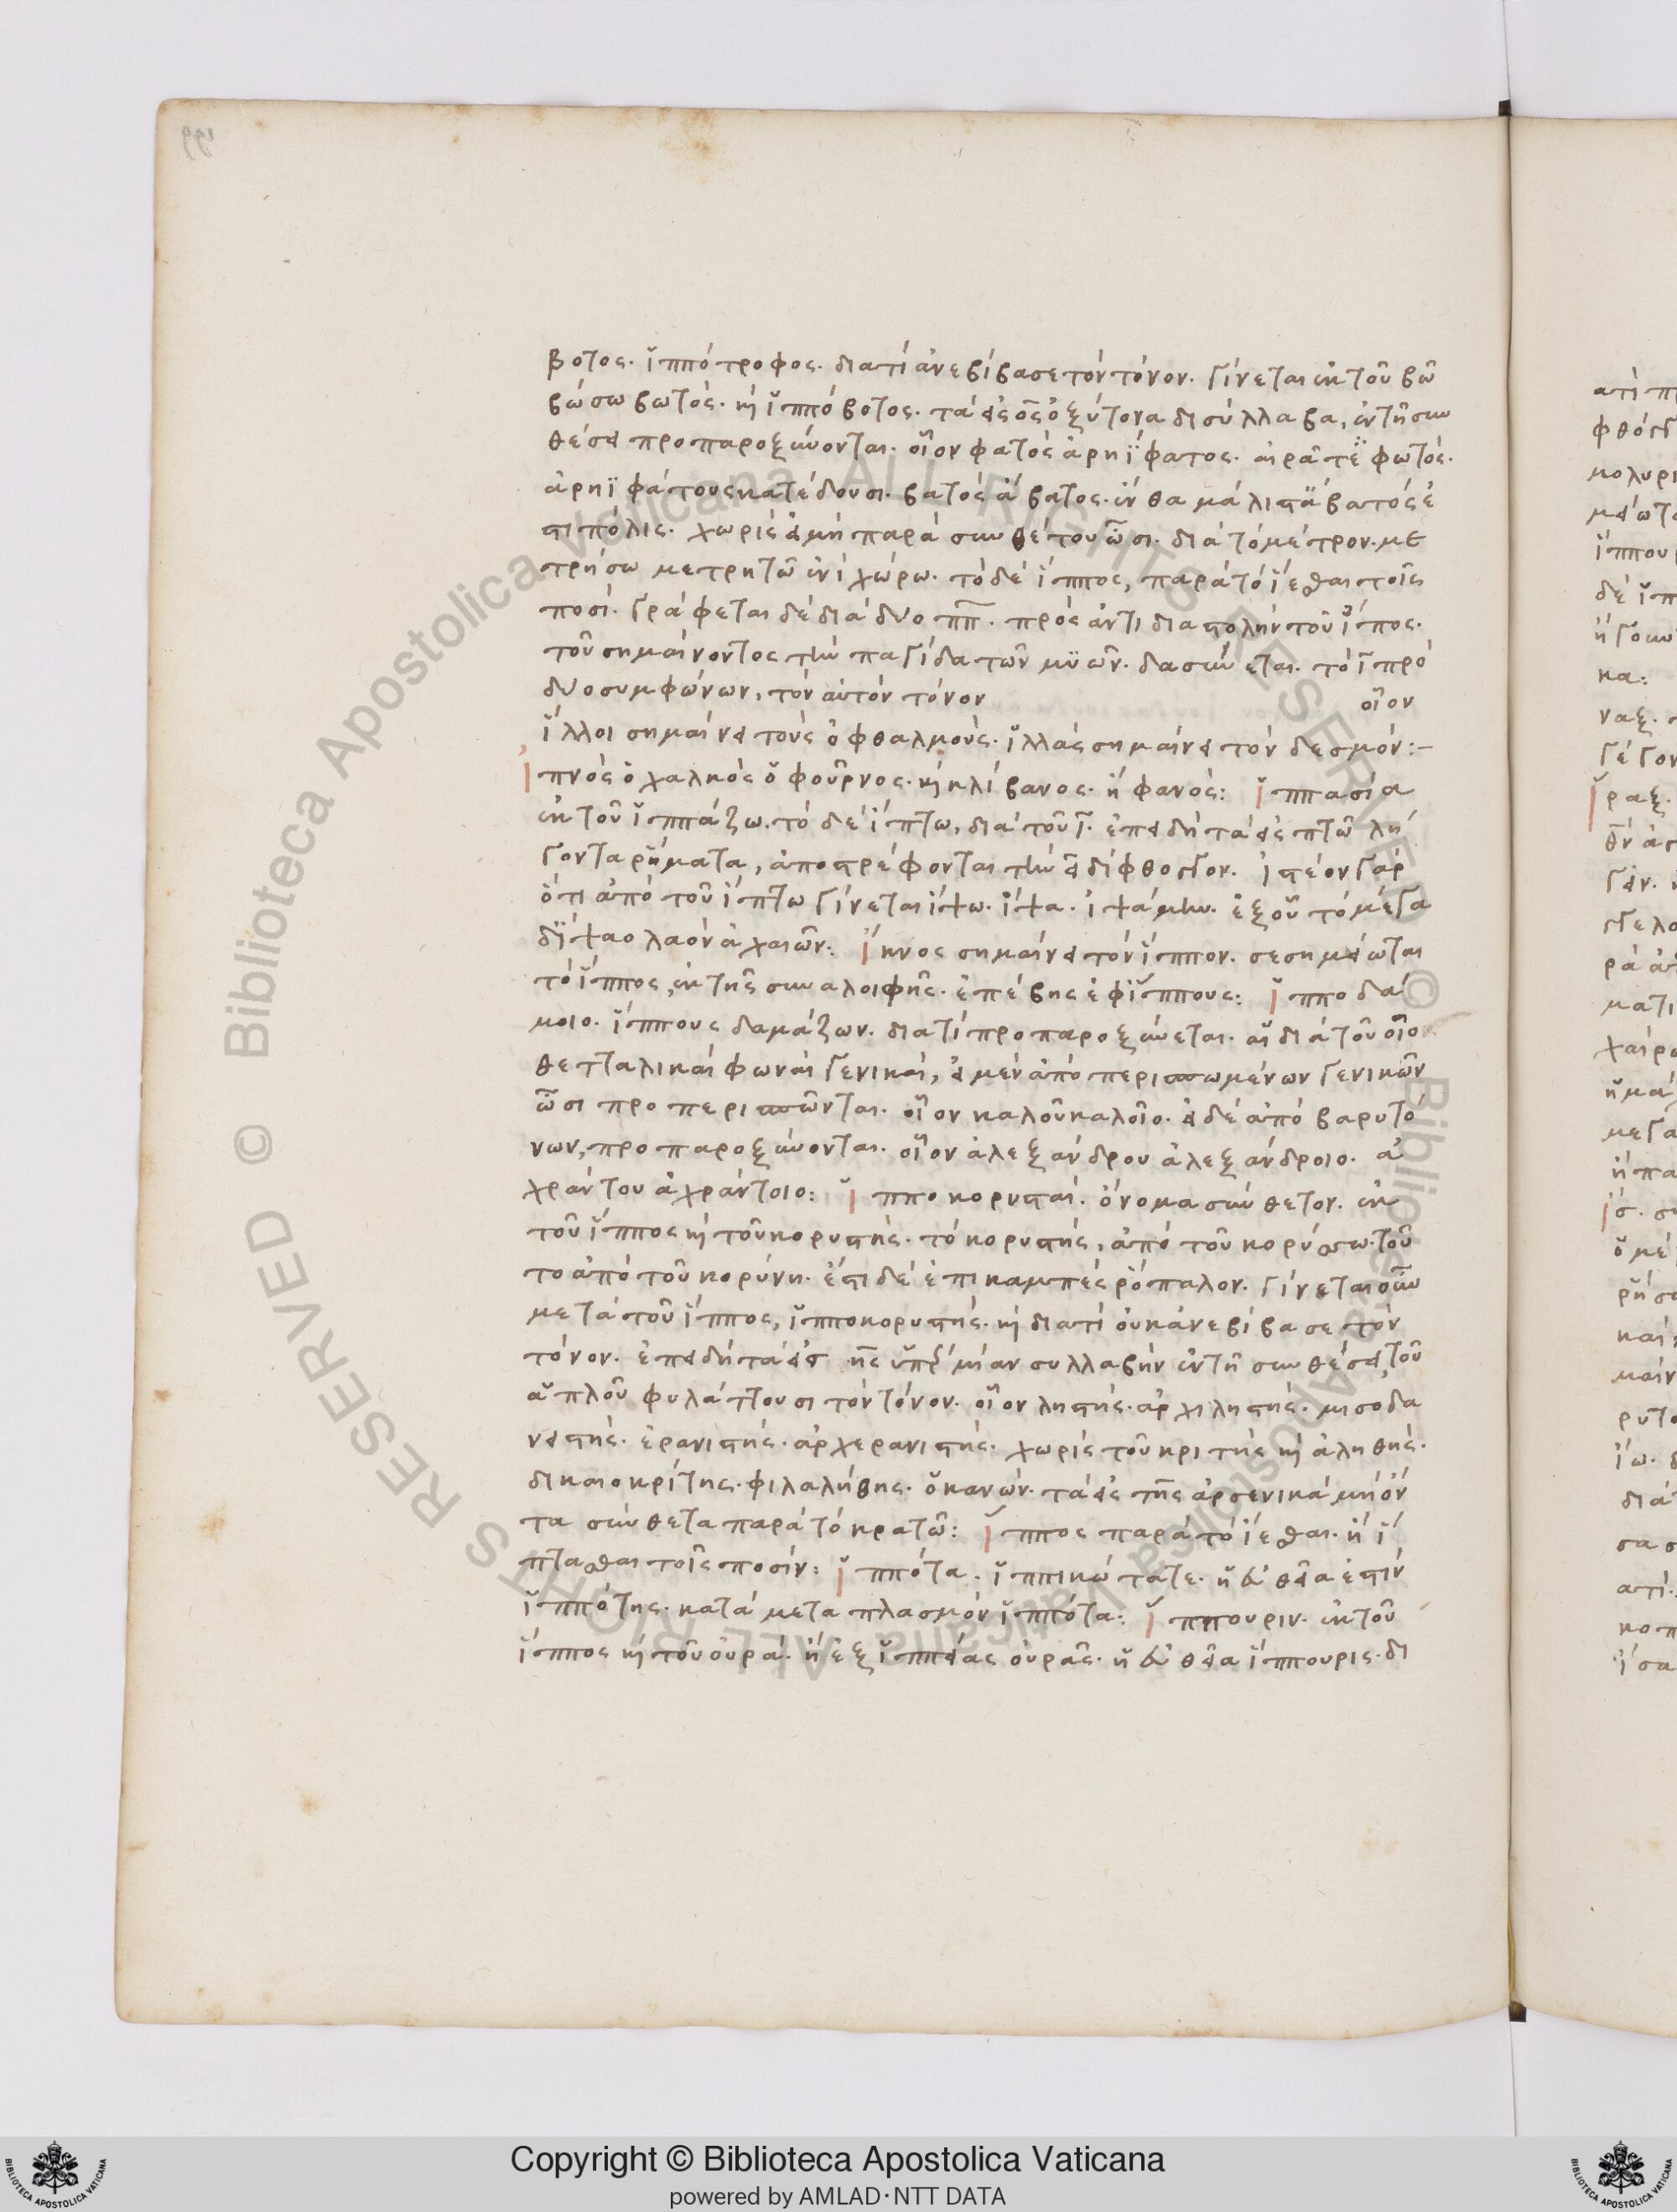 βοτος. ἱππότροφος. διατί ἀνεβίβασε τὸν τόνον. γίνεται ἐκ τοῦ βῶ
βώσω βωτός. καὶ ἱππόβοτος. τὰ εἰς ος ὀξύτονα δισύλλαβα, ἐν τῆ συν
θέσει προπαροξύνονται. οἷον φατὸς ἀρηΐφατος. φωτός.
ἀρηϊφάτους κατέδουσι. βατὸς ἄβατος. ἔνθα μάλιστ' ἀβατός ἐ
στι πόλις. χωρὶς εἰ μὴ παρὰ συνθέτου ὦσι. διὰ τὸ μέτρον. με
τρήσω μετρητῶ ἐνὶ χώρω. τὸ δὲ ἵππος, παρὰ τὸ ἵεσθαι τοῖς
ποσί. γράφεται δὲ διὰ δύο ππ. πρὸς ἀντιδιαστολὴν τοῦ ἶπος.
τοῦ σημαίνοντος τὴν παγίδα τῶν μυῶν. δασύνεται. τὸ ι πρὸ
δύο συμφώνων, τὸν αὐτὸν τόνον οἷον
ἵλλοι σημαίνει τοὺς ὀφθαλμούς. ἱλλὰς σημαίνει τὸν δεσμόν:–
ἰπνὸς ὁ χαλκὸς ὁ φοῦρνος. καὶ κλίβανος. ἢ φανός: ἱππασία
ἐκ τοῦ ἱππάζω. τὸ δὲ ἵπτω, διὰ τοῦ ι. ἐπειδὴ τὰ εἰς πτω λή
γοντα ῥήματα, ἀποστρέφονται τὴν ει δίφθογγον. ἰστέον γὰρ
ὅτι ἀπὸ τοῦ ἵπτω γίνεται ἵψω. ἵψα. ἰψάμην. ἐξ οὗ τὸ μέγα
δ' ἵψαο λαὸν ἀχαιῶν: ἵκκος σημαίνει τὸν ἵππον. σεσημείωται
τὸ ἵππος, ἐκ τῆς συναλοιφῆς. ἐπέβης ἐφ' ἵππους: ἱπποδά
μοιο. ἵππους δαμάζων. διατί προπαροξύνεται. αἱ διὰ τοῦ οιο
θετταλικαὶ φωναὶ γενικαί, εἰ μὲν ἀπὸ περισπωμένων γενικῶν
ὦσι προπερισπῶνται. οἷον καλοῦ καλοῖο. εἰ δὲ ἀπὸ βαρυτό
νων, προπαροξύνονται. οἷον ἀλεξάνδρου ἀλεξάνδροιο. ἀ
χράντου ἀχράντοιο: ἱπποκορυσταί. ὄνομα σύνθετον. ἐκ
τοῦ ἵππος καὶ τοῦ κορυστής. τὸ κορυστής, ἀπὸ τοῦ κορύσσω. τοῦ
το ἀπὸ τοῦ κορύνη. ἔστι δὲ ἐπικαμπὲς ῥόπαλον. γίνεται οὖν
μετὰ τοῦ ἵππος, ἱπποκορυστής. καὶ διατί οὐκ ἀνεβίβασε τὸν
τόνον. ἐπειδὴ τὰ εἰς στης ὑπὲρ μίαν συλλαβὴν ἐν τῆ συνθέσει τοῦ
ἁπλοῦ φυλάττουσι τὸν τόνον. οἷον ληστής. ἀρχιληστής. μισοδα
νειστής. ἐρανιστής. ἀρχερανιστής. χωρὶς τοῦ κριτὴς καὶ ἀληθής.
δικαιοκρίτης. φιλαλήθης. ὁ κανών. τὰ εἰς της ἀρσενικὰ μὴ ὄν
τα σύνθετα παρὰ τὸ κρατῶ: ἵππος παρὰ τὸ ἵεσθαι. ἢ ἵ
πτασθαι τοῖς ποσίν: ἱππότα. ἱππικώτατε. ἡ εὐθεῖα ἐστὶν
ἱππότης. κατὰ μεταπλασμὸν ἱππότα: ἵππουριν. ἐκ τοῦ
ἵππος καὶ τοῦ οὐρά. ἢ ἐξ ἱππείας οὐρᾶς. ἡ εὐθεῖα ἵππουρις. δι
Copyright © Biblioteca Apostolica Vaticana
powered by AMLAD·NTT DATA